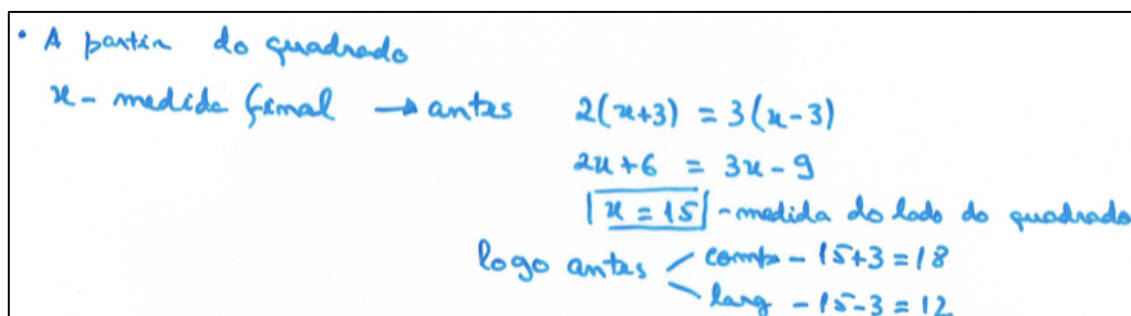 • A partir do quadrado
x - medida final → antes 2(x+3) = 3(x-3)
2x+6 = 3x-9
|x = 15| - medida do lado do quadrado
logo antes comp - 15+3=18
larg - 15-3=12